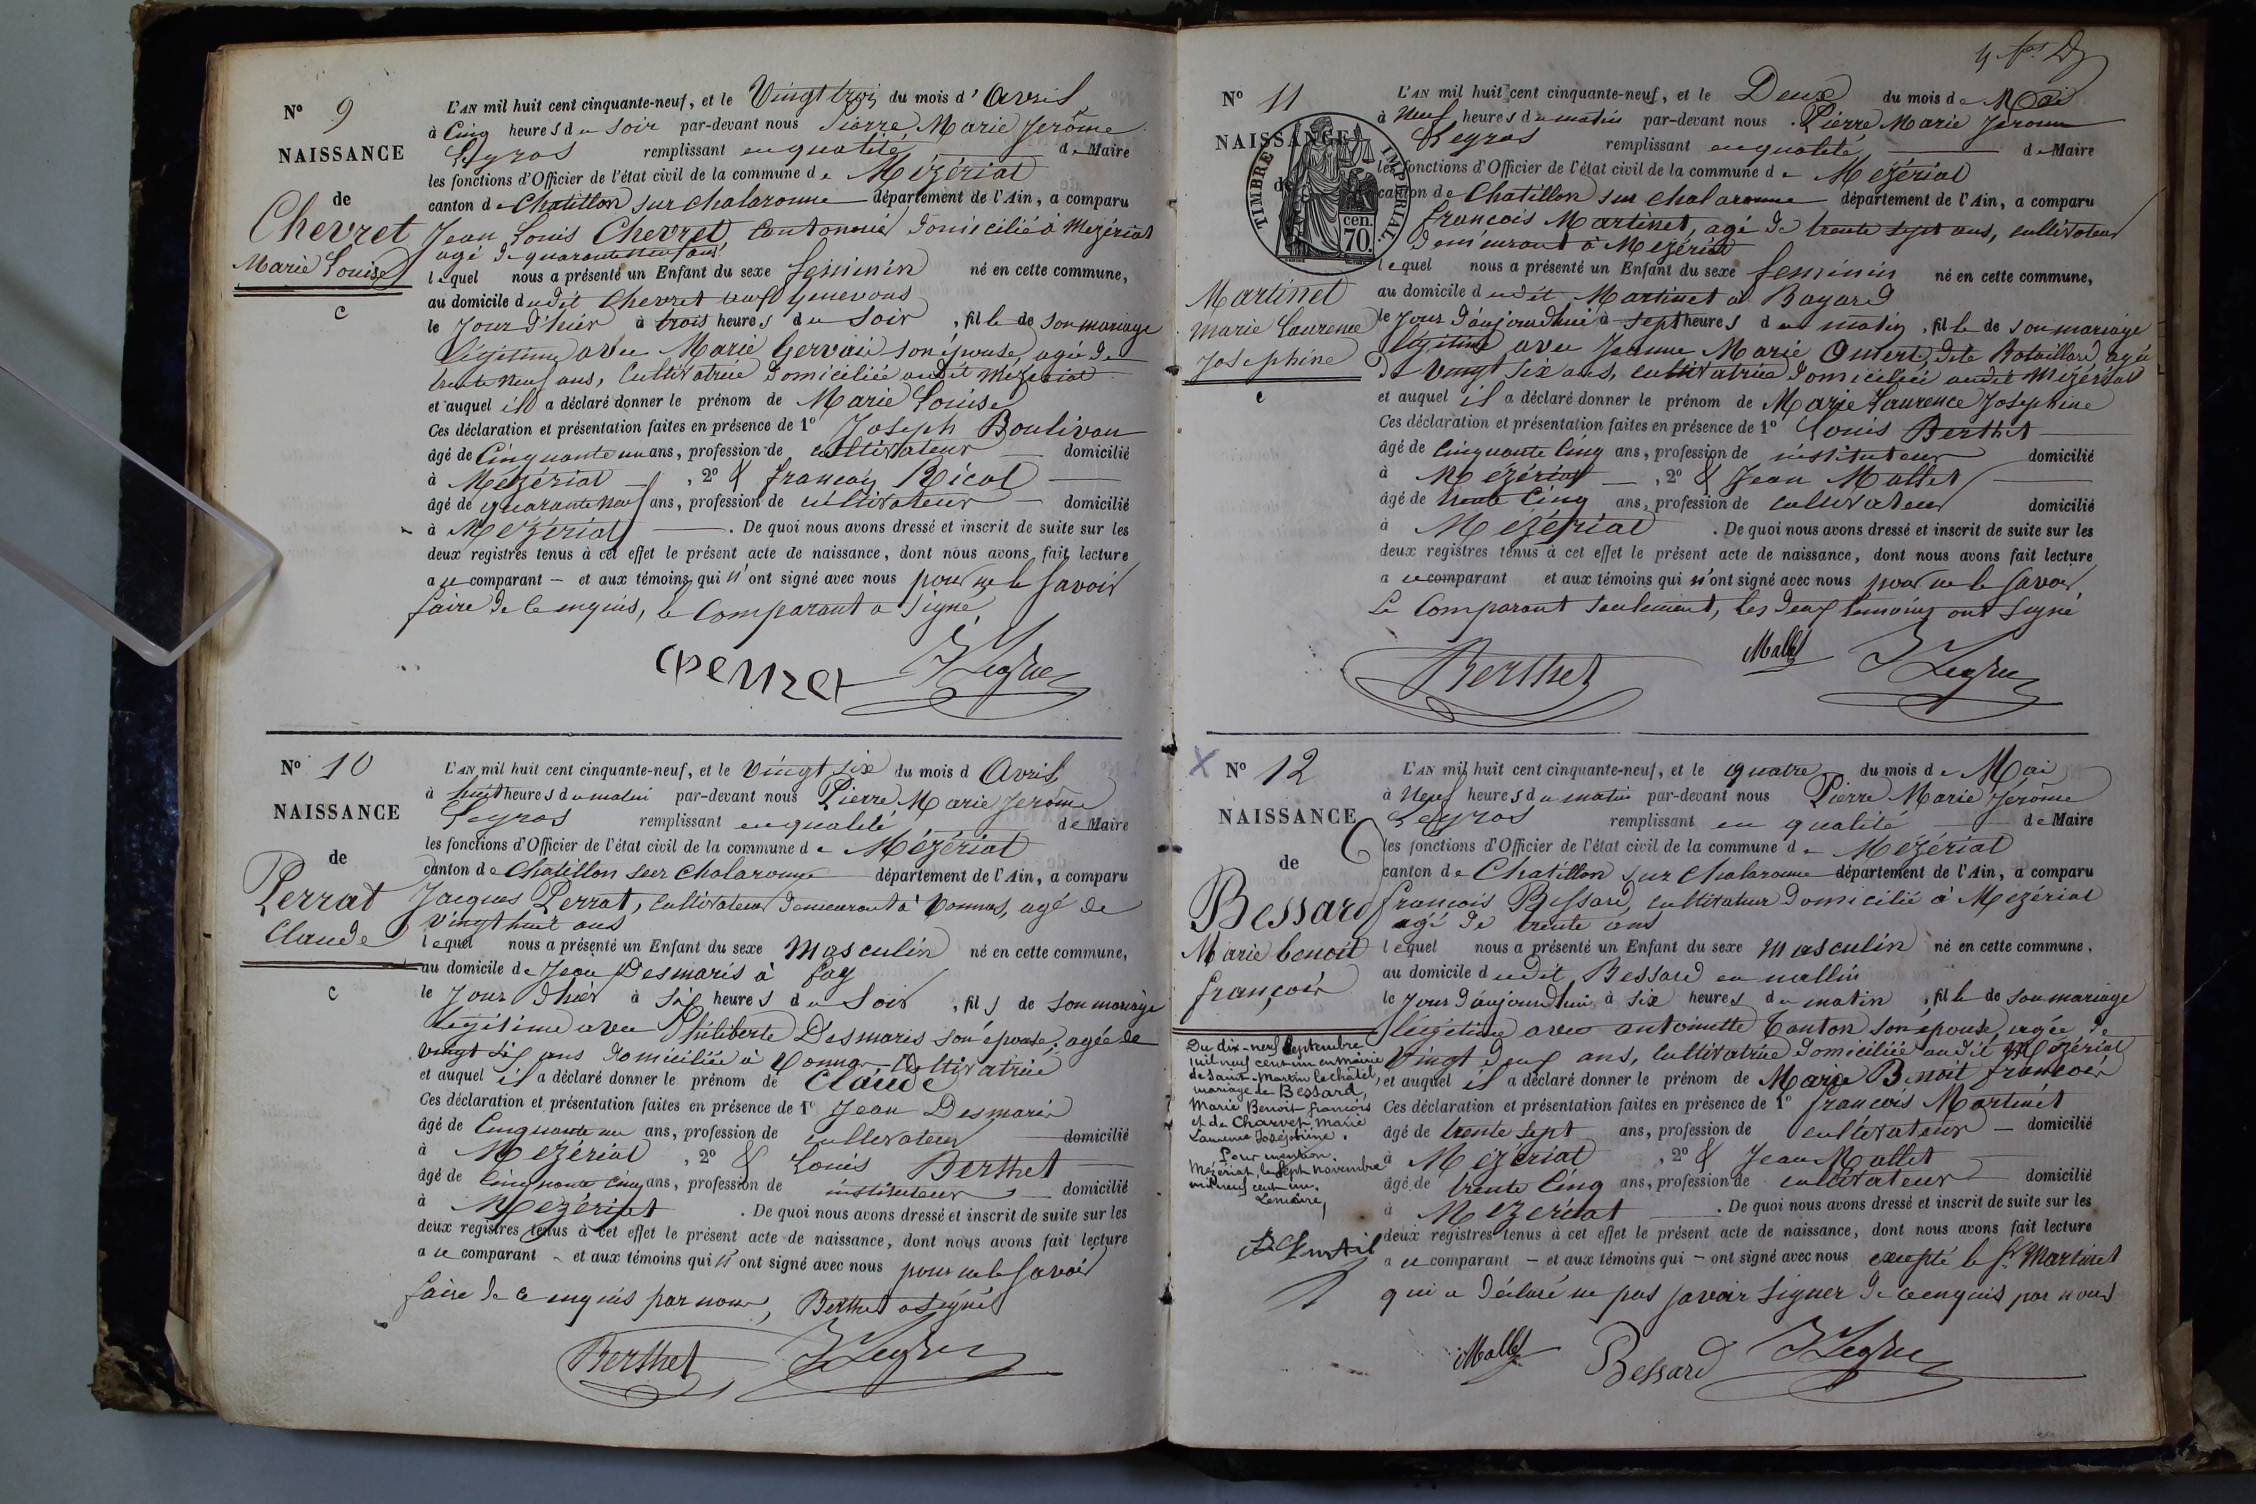 Nº 9
NAISSANCE
de
Chevret
Marie Louise
c
L'AN mil huit cent cinquante-neuf, et le Vingt trois du mois d'Avril
à Cinq heures du Soir par-devant nous Pierre Marie Jerôme
Legros remplissant en qualité de Maire
les fonctions d'Officier de l'état civil de la commune de Mézériat
canton de Chatillon sur chalaronne département de l'Ain, a comparu
Jean Louis Chevret Cantonnié domicilié à Mezériat
agé de quarante neuf ans
lequel nous a présenté un Enfant du sexe feminin né en cette commune,
au domicile dudit Chevret
le Jour d'hier à trois heures du Soir, fille de son mariage
légitime avec Marie Gervais son épouse, agée de
trente neuf ans, Cultivatrice domiciliée audit Mézériat
et auquel il a déclaré donner le prénom de Marie Louise
Ces déclaration et présentation faites en présence de 1º Joseph Boulivan
âgé de Cinquante un ans, profession de cultivateur domicilié
à Mézériat, 2º & francois Ricol
âgé de quarante neuf ans, profession de cultivateur domicilié
à Mezériat. De quoi nous avons dressé et inscrit de suite sur les
deux registres tenus à cet effet le présent acte de naissance, dont nous avons fait lecture
a ce comparant – et aux témoins qui n'ont signé avec nous pour ne le Savoir
faire de ce enquis, le Comparant a Signé
Chevret
Nº 10
NAISSANCE
de
Perrat
Claude
c
L'AN mil huit cent cinquante-neuf, et le Vingt six du mois d Avril
à huit heures du matin par-devant nous Pierre Marie Jerôme
Legros remplissant en qualité de Maire
les fonctions d'Officier de l'état civil de la commune de Mézériat
canton de Chatillon sur chalaronne département de l'Ain, a comparu
Jacques Perrat, Cultivateur demeurant à Vonnas, agé de
Vingt huit ans
lequel nous a présenté un Enfant du sexe Masculin né en cette commune,
au domicile de Jean Desmaris à fay
le Jour d'hier à six heures du Soir, fils de son mariage
légitime avec Philiberte Desmaris son épouse, agée de
vingt six ans domiciliée à Vonnas Cultivatrice
et auquel il a déclaré donner le prénom de Claude
Ces déclaration et présentation faites en présence de 1º Jean Desmaris
âgé de Cinquante un ans, profession de cultivateur domicilié
à Mezériat, 2º & Louis Berthet
âgé de Cinquante Cinq ans, profession de instituteur domicilié
à Mezériat. De quoi nous avons dressé et inscrit de suite sur les
deux registres tenus à cet effet le présent acte de naissance, dont nous avons fait lecture
a ce comparant – et aux témoins qui n'ont signé avec nous pour ne le Savoir
faire de ce enquis par nous, Berthet a Signé
Berthet
Nº 11
NAISSANCE
de
TIMBRE IMPERIAL
70 cen.
Martinet
Marie Laurence
Josephine
c
L'AN mil huit cent cinquante-neuf, et le Deux du mois de Mai
à Neuf heures du matin par-devant nous Pierre Marie Jerome
Legros remplissant en qualité de Maire
les fonctions d'Officier de l'état civil de la commune de Mezériat
canton de Chatillon sur chalaronne département de l'Ain, a comparu
francois Martinet, agé de trente sept ans, cultivateur
demeurant à Mezériat
lequel nous a présenté un Enfant du sexe feminin né en cette commune,
au domicile dudit Martinet à Bayard
le Jour d'aujourdhui à sept heures du matin, fille de son mariage
légitime avec Jeanne Marie dite Bataillard, agée
de Vingt six ans, cultivatrice domiciliée audit Mézériat
et auquel il a déclaré donner le prénom de Marie Laurence Josephine
Ces déclaration et présentation faites en présence de 1º Louis Berthet
âgé de Cinquante Cinq ans, profession de instituteur domicilié
à Mezériat, 2º & Jean Mallet
âgé de trente Cinq ans, profession de cultivateur domicilié
à Mezériat. De quoi nous avons dressé et inscrit de suite sur les
deux registres tenus à cet effet le présent acte de naissance, dont nous avons fait lecture
a ce comparant et aux témoins qui n'ont signé avec nous pour ne le Savoir
Le Comparant seulement, les deux temoins ont Signé
Berthet Mallet
Nº 12
NAISSANCE
de
Bessard
Marie benoit
françois
Du dix-neuf Septembre
mil neuf cent un en mairie
de Saint-Martin le châtel,
mariage de Bessard,
Marie Benoit françois
et de Charvet Marie
Laurence Joséphine.
Pour mention.
Mézériat, le sept novembre
mil neuf cent un.
Le maire,
L'AN mil huit cent cinquante-neuf, et le quatre du mois de Mai
à Neuf heures du matin par-devant nous Pierre Marie Jérôme
Legros remplissant en qualité de Maire
les fonctions d'Officier de l'état civil de la commune de Mezériat
canton de Chatillon sur chalaronne département de l'Ain, a comparu
francois Bessard, cultivateur domicilié à Mezériat
agé de trente ans
lequel nous a présenté un Enfant du sexe masculin né en cette commune,
au domicile dudit Bessard en mallin
le Jour d'aujourdhui à six heures du matin, fil le de son mariage
légitime avec antoinette Tanton son épouse, agée de
Vingt deux ans, Cultivatrice domiciliée audit Mézériat
et auquel il a déclaré donner le prénom de Marie Benoit francois
Ces déclaration et présentation faites en présence de 1º francois Martinet
âgé de trente sept ans, profession de cultivateur domicilié
à Mezériat, 2º & Jean Mallet
âgé de trente Cinq ans, profession de cultivateur domicilié
à Mezériat. De quoi nous avons dressé et inscrit de suite sur les
deux registres tenus à cet effet le présent acte de naissance, dont nous avons fait lecture
a ce comparant – et aux témoins qui – ont signé avec nous excepté le Sr Martinet
qui a déclaré ne pas savoir signer de ce enquis par nous
Mallet Bessard